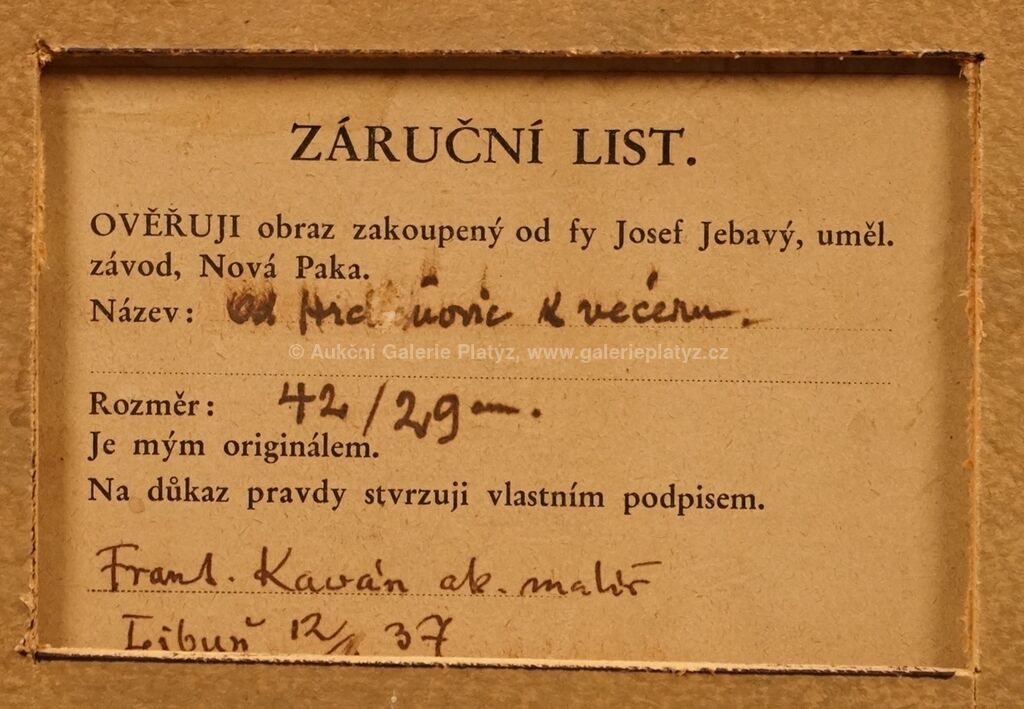 ZÁRUČNÍ LIST.
OVĚŘUJI obraz zakoupený od fy Josef Jebavý, uměl.
závod, Nová Paka.
Název: Od k večeru.
© Aukční Galerie Platýz, www.galerieplatyz.cz
Rozměr: 42/29 cm.
Je mým originálem.
Na důkaz pravdy stvrzuji vlastním podpisem.
Frant. Kaván ak. malíř
Libuň 12/ 37